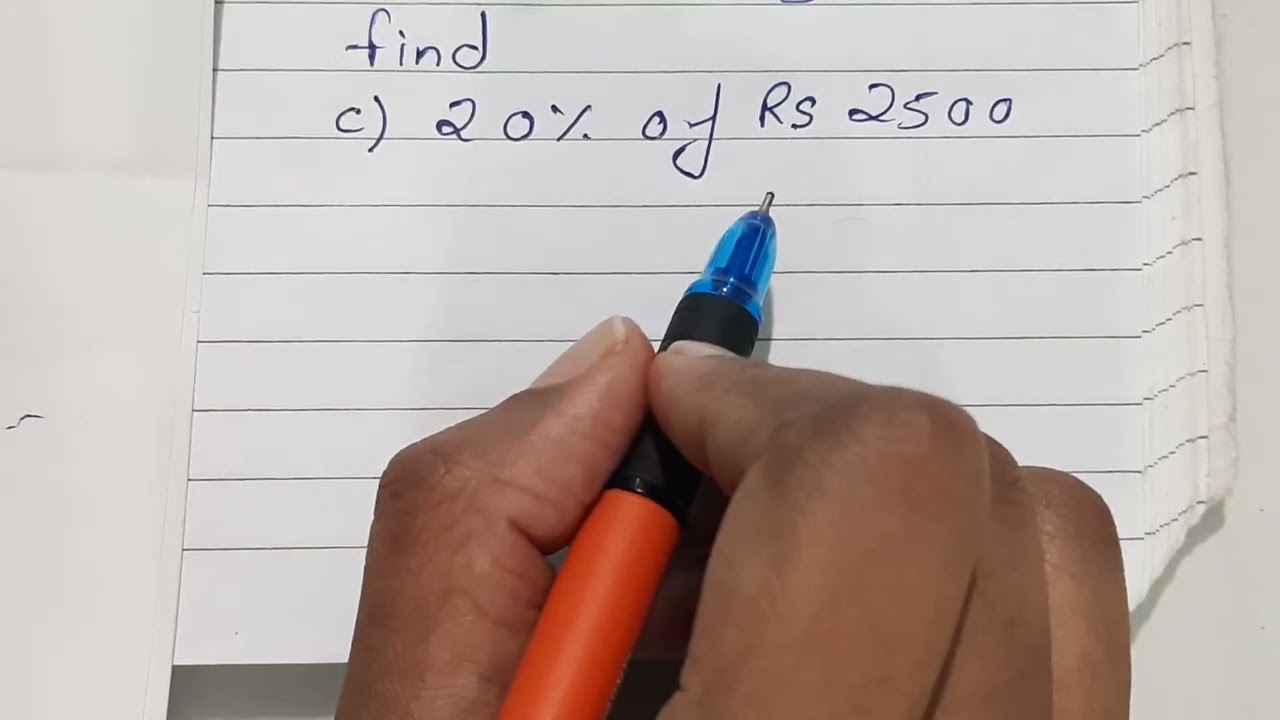 find
c) 20% of Rs 2500